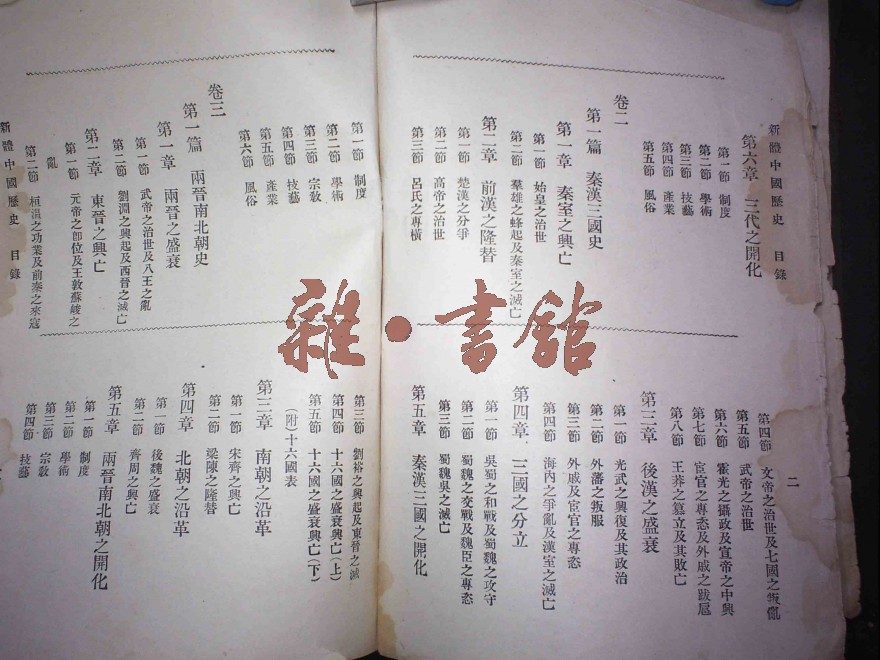 新體中國歷史 目錄
二
第六章 三代之開化
第一節 制度
第二節 學術
第三節 技藝
第四節 產業
第五節 風俗
卷二
第一篇 秦漢三國史
第一章 秦室之興亡
第一節 始皇之治世
第二節 羣雄之蜂起及秦室之滅亡
第二章 前漢之隆替
第一節 楚漢之分爭
第二節 高帝之治世
第三節 呂氏之專橫
第四節 文帝之治世及七國之叛亂
第五節 武帝之治世
第六節 霍光之攝政及宣帝之中興
第七節 宦官之專恣及外戚之跋扈
第八節 王莽之篡立及其敗亡
第三章 後漢之盛衰
第一節 光武之興復及其政治
第二節 外藩之叛服
第三節 外戚及宦官之專恣
第四節 海內之爭亂及漢室之滅亡
第四章 三國之分立
第一節 吳蜀之和戰及蜀魏之攻守
第二節 蜀魏之交戰及魏臣之專恣
第三節 蜀魏吳之滅亡
第五章 秦漢三國之開化
第一節 制度
第二節 學術
第三節 宗教
第四節 技藝
第五節 產業
第六節 風俗
卷三
第一篇 兩晉南北朝史
第一章 兩晉之盛衰
第一節 武帝之治世及八王之亂
第二節 劉淵之興起及西晉之滅亡
第二章 東晉之興亡
第一節 元帝之即位及王敦蘇峻之
亂
第二節 桓溫之功業及前秦之來寇
新體中國歷史 目錄
第三節 劉裕之興起及東晉之滅
第四節 十六國之盛衰興亡(上)
第五節 十六國之盛衰興亡(下)
(附)十六國表
第三章 南朝之沿革
第一節 宋齊之興亡
第二節 梁陳之隆替
第四章 北朝之沿革
第一節 後魏之盛衰
第二節 齊周之興亡
第五章 兩晉南北朝之開化
第一節 制度
第二節 學術
第三節 宗教
第四節 技藝
雜·書館